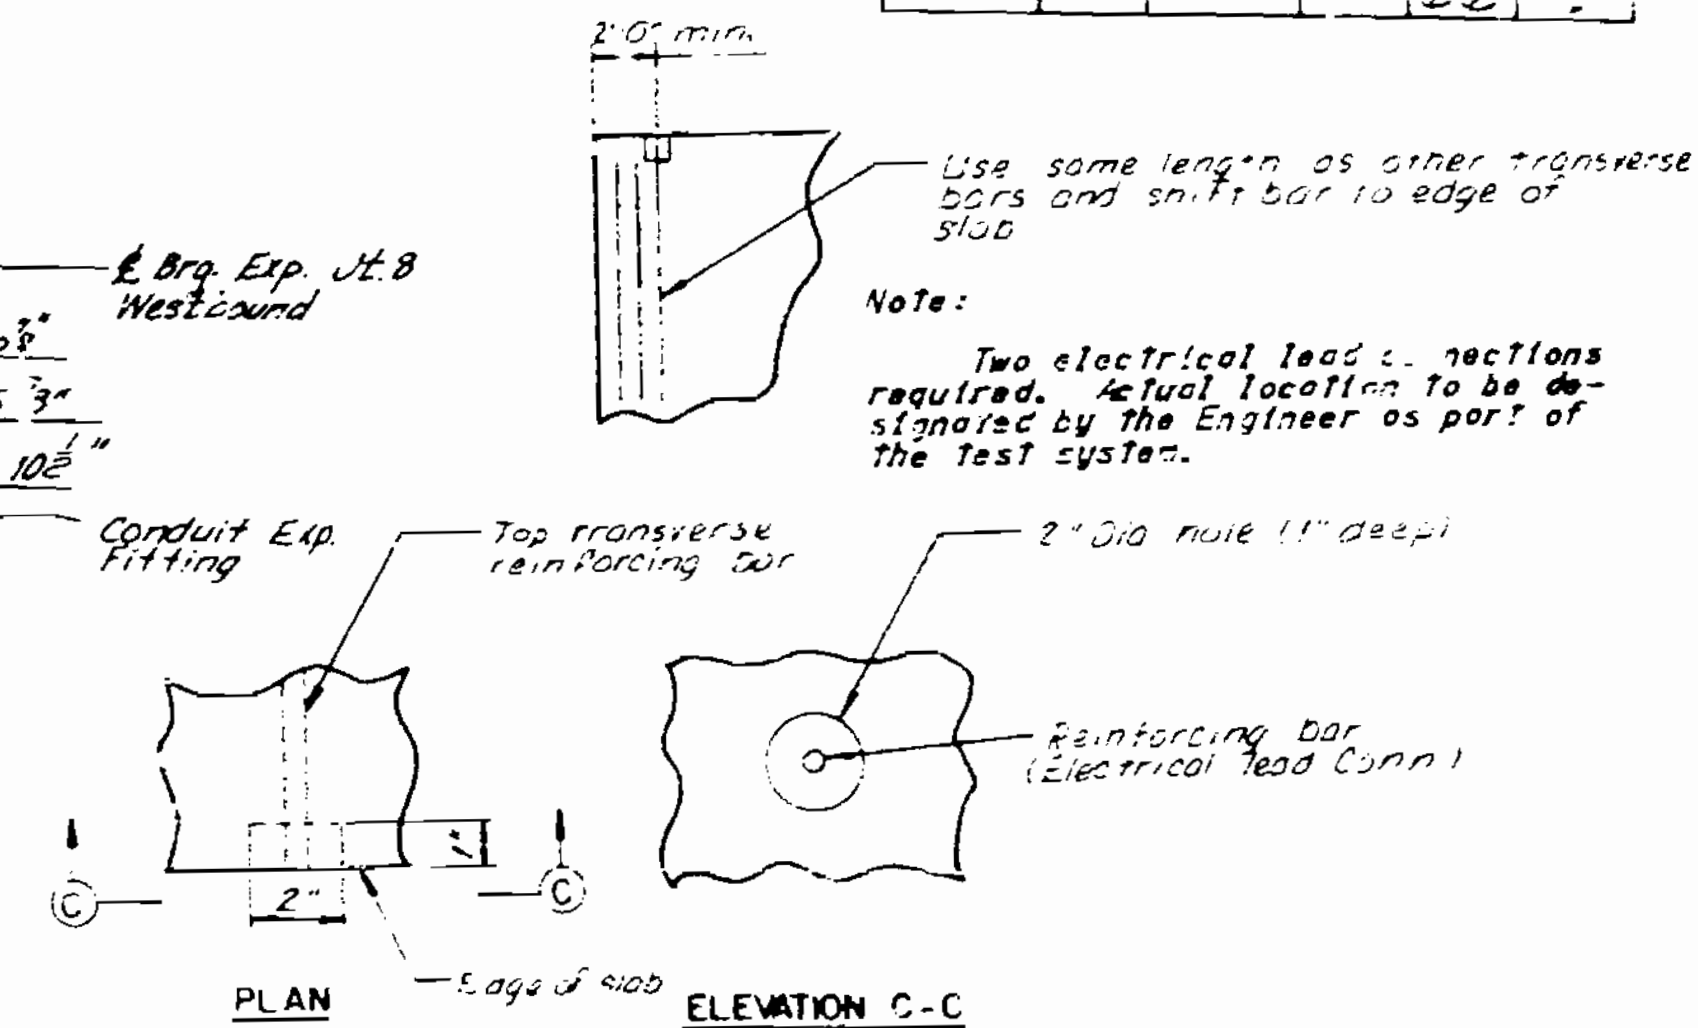 2'-0" min.
Use same length as other transverse
bars and shift bar to edge of
slab
℄ Brg. Exp. Jt. 8
Westbound
Note:
Two electrical lead
required. Actual location to be de-
signated by the Engineer as part of
the test system.
10½"
Conduit Exp.
Fitting
Top transverse
reinforcing bar
2" Dia hole (1" deep)
Reinforcing bar
(Electrical lead Conn.)
1"
C
C
2"
Edge of slab
PLAN
ELEVATION C-C